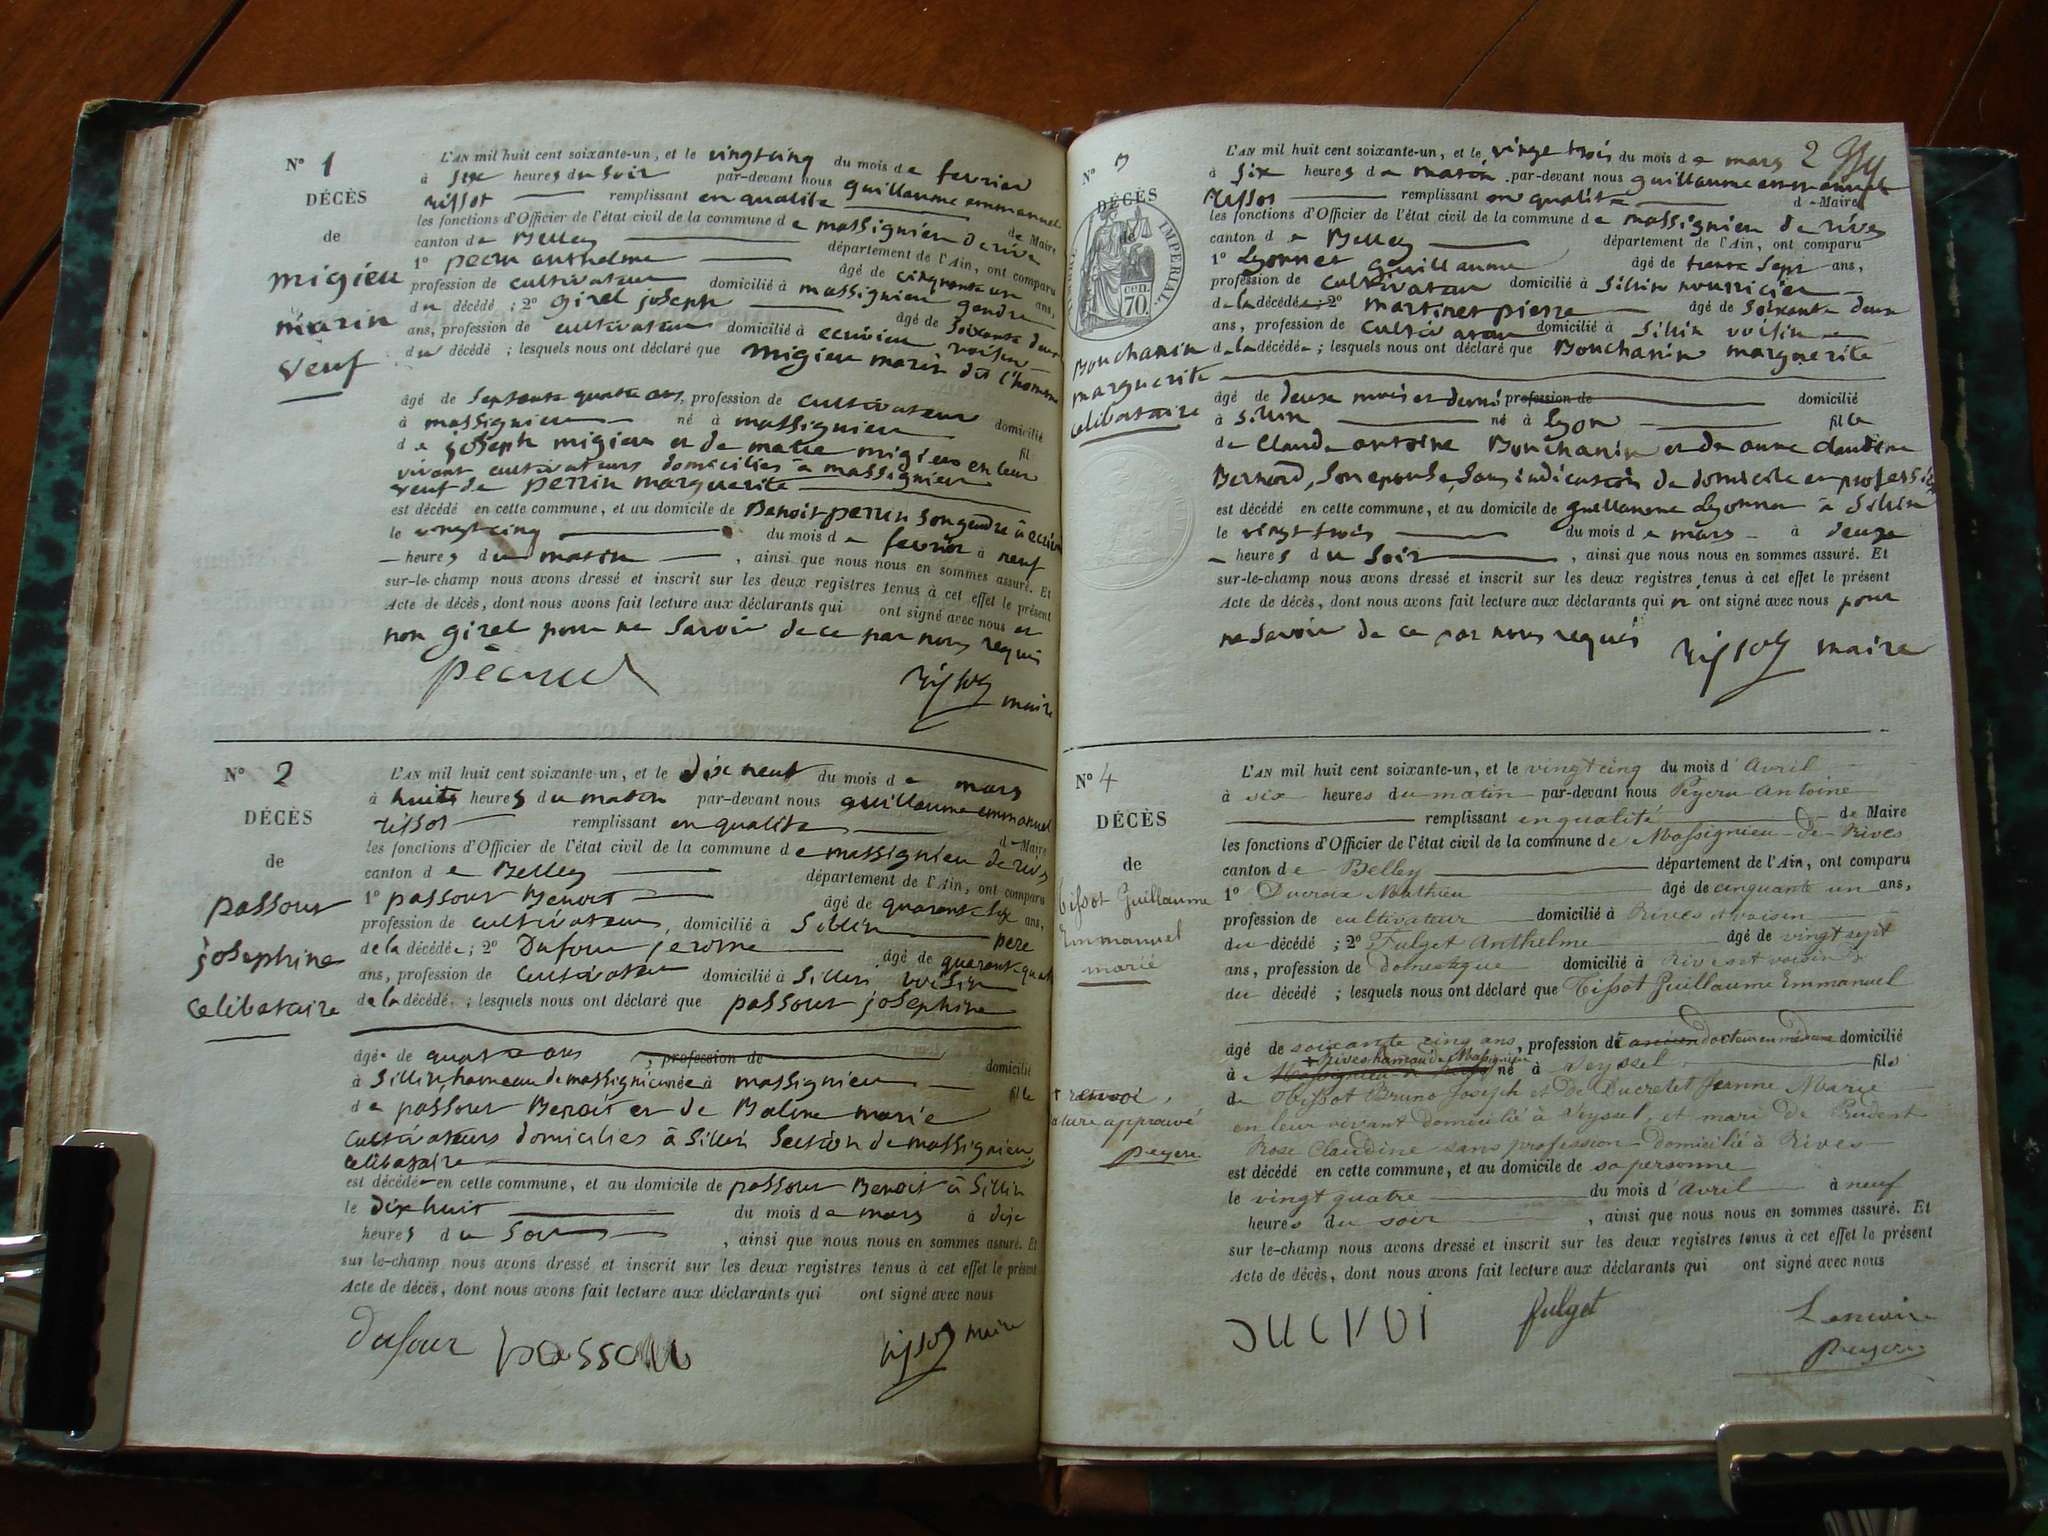 N° 1
DÉCÈS
de
migieu
marin
veuf
L'AN mil huit cent soixante-un, et le vingtcinq du mois de fevrier
à six heures du soir par-devant nous guillaume emmanuel
tissot remplissant en qualité de Maire
les fonctions d'Officier de l'état civil de la commune de massignieu de rive
canton de Belley département de l'Ain, ont comparu
1° anthelme âgé de cinquante un ans,
profession de cultivateur domicilié à massignieu gendre
du décédé ; 2° girel joseph âgé de soixante deux
ans, profession de cultivateur domicilié à ecrivieu voisin
du décédé ; lesquels nous ont déclaré que migieu marin dit l'homme
âgé de septante quatre ans, profession de cultivateur domicilié
à massignieu né à massignieu fil
de joseph migieu et de migieu en leur
vivant cultivateurs domiciliés à massignieu
veuf de perrin marguerite
est décédé en cette commune, et au domicile de Benoit perrin son gendre à
le vingtcinq du mois de fevrier à neuf
heures du matin , ainsi que nous nous en sommes assuré. Et
sur-le-champ nous avons dressé et inscrit sur les deux registres tenus à cet effet le présent
Acte de décès, dont nous avons fait lecture aux déclarants qui ont signé avec nous et
non girel pour ne savoir de ce par nous requis
tissot maire
N° 2
DÉCÈS
de
passour
josephine
celibataire
L'AN mil huit cent soixante-un, et le dix neuf du mois de mars
à huits heures du matin par-devant nous guillaume emmanuel
tissot remplissant en qualité d Maire
les fonctions d'Officier de l'état civil de la commune de massignieu de rives
canton de Belley département de l'Ain, ont comparu
1° passour Benoit âgé de quarante six ans,
profession de cultivateur, domicilié à Sillin pere
de la décédée ; 2° Dufour jerome âgé de quarante quatre
ans, profession de cultivateur domicilié à Sillin voisin
de la décédé. ; lesquels nous ont déclaré que passour josephine
âgée de quatre ans , profession de domicilié
à Sillin, hameau de massignieu née à massignieu fille
de passour Benoit et de Balme marie
cultivateurs domiciliés à Sillin Section de massignieu
celibataire
est décédée en cette commune, et au domicile de passour Benoit à Sillin
le dix huit du mois de mars à dix
heures du soir , ainsi que nous nous en sommes assuré. Et
sur-le-champ nous avons dressé et inscrit sur les deux registres tenus à cet effet le présent
Acte de décès, dont nous avons fait lecture aux déclarants qui ont signé avec nous
dufour passour tissot maire
2
N° 3
DÉCÈS
de
TIMBRE IMPERIAL
70 cen.
Bouchanin
marguerite
celibataire
L'AN mil huit cent soixante-un, et le vingt trois du mois de mars
à six heures de matin par-devant nous guillaume emmanuel
tissot remplissant en qualité d Maire
les fonctions d'Officier de l'état civil de la commune de massignieu de rives
canton de Belley département de l'Ain, ont comparu
1° Lyonnet guillaume âgé de trente sept ans,
profession de cultivateur domicilié à Sillin nourricier
de la décédée ; 2° martinet pierre âgé de soixante deux
ans, profession de cultivateur domicilié à Sillin voisin
de la décédée ; lesquels nous ont déclaré que Bouchanin marguerite
âgé de deux mois et demi profession de domicilié
à Sillin né à Lyon fille
de Claude antoine Bouchanin et de anne claudine
Bernard, son epouse, sans indication de domicile en profession
est décédé en cette commune, et au domicile de guillaume Lyonnet à Sillin
le vingt trois du mois de mars à deux
heures du soir , ainsi que nous nous en sommes assuré. Et
sur-le-champ nous avons dressé et inscrit sur les deux registres tenus à cet effet le présent
Acte de décès, dont nous avons fait lecture aux déclarants qui n ont signé avec nous pour
ne savoir de ce par nous requis tissot maire
N° 4
DÉCÈS
de
Tissot Guillaume
Emmanuel
marié
L'AN mil huit cent soixante-un, et le vingt cinq du mois d'Avril
à six heures du matin par-devant nous Peycru Antoine
remplissant en qualité de Maire
les fonctions d'Officier de l'état civil de la commune de Massignieu-de-Rives
canton de Belley département de l'Ain, ont comparu
1° Ducroix Mathieu âgé de cinquante un ans,
profession de cultivateur domicilié à Rives et voisin
du décédé ; 2° Fulget Anthelme âgé de vingt sept
ans, profession de Domestique domicilié à Rives et voisin
du décédé ; lesquels nous ont déclaré que Tissot Guillaume Emmanuel
âgé de soixante cinq ans, profession d ancien docteur en médecine domicilié
+ Rives hameau de Massignieu
à Massignieu de Rives né à Seyssel fils
de Tissot Bruno Joseph et de Ducretet Jeanne Marie
en leur vivant domicilié à Seyssel, et mari de Prudent
Rose Claudine sans profession domicilié à Rives
est décédé en cette commune, et au domicile de sa personne
le vingt quatre du mois d'Avril à neuf
heures du soir , ainsi que nous nous en sommes assuré. Et
sur le-champ nous avons dressé et inscrit sur les deux registres tenus à cet effet le présent
Acte de décès, dont nous avons fait lecture aux déclarants qui ont signé avec nous
+ renvoi
rature approuvé
Peycru
fulget Le maire
Peycru